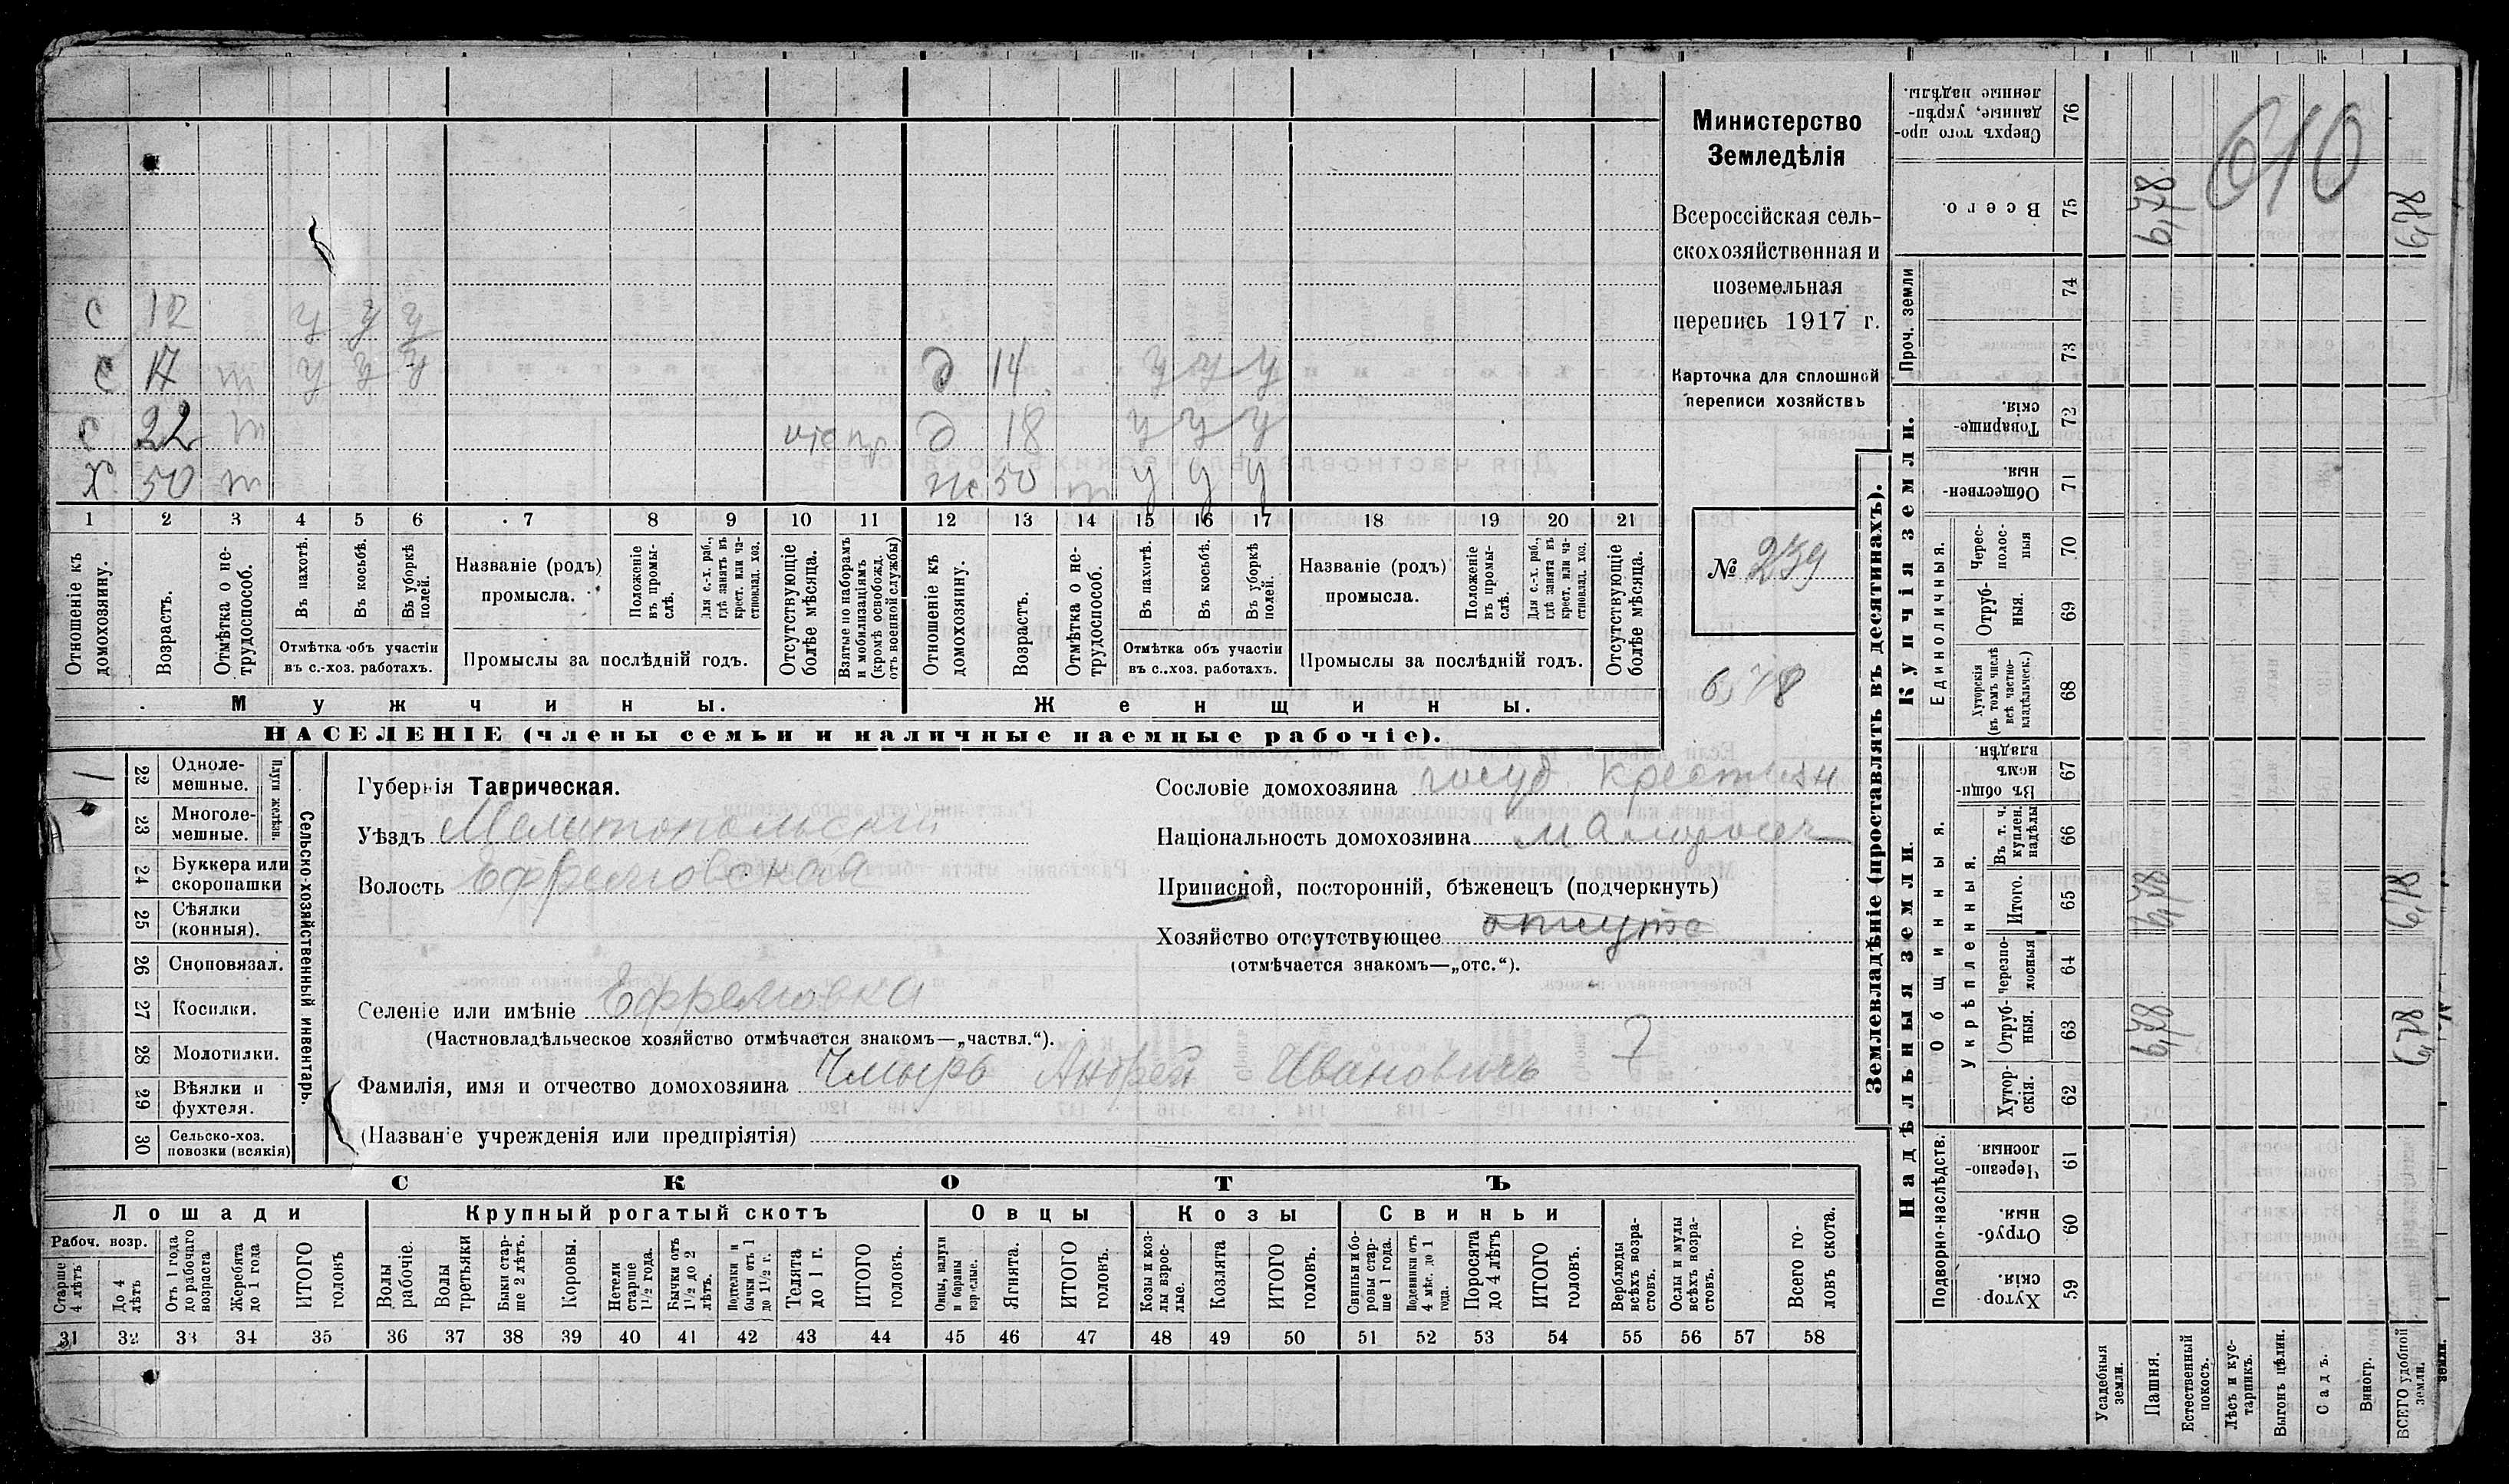 Министерство
Земледѣлія
Всероссійская сель-
скохозяйственная и
поземельная
перепись 1917 г.
Карточка для сплошной
переписи хозяйствъ
№ 239
6,78
610
с 12 у у у
с 17 т у у у д 14 у у у
с 22 т д 18 у у у
х 50 т ж 50 т у у у
1 2 3 4 5 6 7 8 9 10 11 12 13 14 15 16 17 18 19 20 21
Отношеніе къ домохозяину.
Возрастъ.
Отмѣтка о не-трудоспособ.
Въ пахотѣ.
Въ косьбѣ.
Въ уборкѣ полей.
Отмѣтка объ участіи
въ с.-хоз. работахъ.
Названіе (родъ)
промысла.
Положеніе въ промы-слѣ.
Для с.-х. раб., гдѣ занятъ въ крест. или ча-стновлад. хоз.
Промыслы за послѣдній годъ.
Отсутствующіе болѣе мѣсяца.
Взятые по наборамъ и мобилизаціямъ (кромѣ освобожд. отъ военной службы)
Отношеніе къ домохозяину.
Возрастъ.
Отмѣтка о не-трудоспособ.
Въ пахотѣ.
Въ косьбѣ.
Въ уборкѣ полей.
Отмѣтка объ участіи
въ с..хоз. работахъ.
Названіе (родъ)
промысла.
Положеніе въ промы-слѣ.
Для с.-х. раб., гдѣ занята въ крест. или ча-стновлад. хоз.
Промыслы за послѣдній годъ.
Отсутствующіе болѣе мѣсяца.
Мужчины. Женщины.
НАСЕЛЕНІЕ (члены семьи и наличные наемные рабочіе).
22 Одноле-мешные.
23 Многоле-мешные.
Плуги желѣзн.
24 Буккера или скоропашки
25 Сѣялки (конныя).
26 Сноповязал.
27 Косилки.
28 Молотилки.
29 Вѣялки и фухтеля.
30 Сельско-хоз. повозки (всякія)
Сельско-хозяйственный инвентарь.
Губернія Таврическая.
Уѣздъ Мелитопольскій
Волость Ефремовская
Селеніе или имѣніе Ефремовка
(Частновладѣльческое хозяйство отмѣчается знакомъ—„частвл.“).
Фамилія, имя и отчество домохозяина Чмырь Андрей Ивановичъ 7
(Названіе учрежденія или предпріятія)
Сословіе домохозяина госуд. крестьян
Національность домохозяина малоросъ
Приписной, посторонній, бѣженецъ (подчеркнуть)
Хозяйство отсутствующее
(отмѣчается знакомъ—„отс.“).
СКОТЪ
Лошади Крупный рогатый скотъ Овцы Козы Свиньи
Рабоч. возр.
Старше 4 лѣтъ
До 4 лѣтъ
Отъ 1 года до рабочаго возраста
Жеребята до 1 года
ИТОГО головъ
Волы рабочіе.
Волы третьяки
Быки стар-ше 2 лѣтъ.
Коровы.
Нетели старше 1½ года.
Бычки отъ 1½ до 2 лѣтъ.
Подтелки и бычки отъ 1 до 1½ г.
Телята до 1 г.
ИТОГО головъ.
Овцы, валухи и бараны взрослые.
Ягнята.
ИТОГО головъ.
Козы и коз-лы взрос-лые.
Козлята
ИТОГО головъ.
Свиньи и бо-ровы стар-ше 1 года.
Подсвинки отъ 4 мѣс. до 1 года.
Поросята до 4 лѣтъ
ИТОГО головъ.
Верблюды всѣхъ возра-стовъ.
Ослы и мулы всѣхъ возра-стовъ.
Всего го-ловъ скота.
31 32 33 34 35 36 37 38 39 40 41 42 43 44 45 46 47 48 49 50 51 52 53 54 55 56 57 58
Землевладѣніе (проставлять въ десятинахъ).
Сверхъ того про-данные, укрѣп-ленные надѣлы. 76
Всего. 75 6,78 6,78
Проч. земли 74
73
Купчія земли.
Товарище-скія. 72
Обществен-ныя. 71
Единоличныя.
Черес-полос-ныя 70
Отруб-ныя. 69
Хуторскія (въ томъ числѣ всѣ частно-владѣльческ.) 68
Надѣльныя земли.
Общинныя.
Въ общи-номъ владѣн. 67
Укрѣпленныя.
Въ т. ч. куплен. надѣлы 66
Итого. 65 6,78 6,78
Черезпо-лосныя 64
Отруб-ныя. 63 6,78 6,78
Хутор-скія. 62
Подворно-наслѣдств.
Черезпо-лосныя 61
Отруб-ныя. 60
Хутор-скія. 59
Усадебныя земли.
Пашня.
Естественный покосъ.
Лѣсъ и кус-тарникъ.
Выгонъ цѣлин.
Садъ.
Виногр.
ВСЕГО удобной земли.
земли.